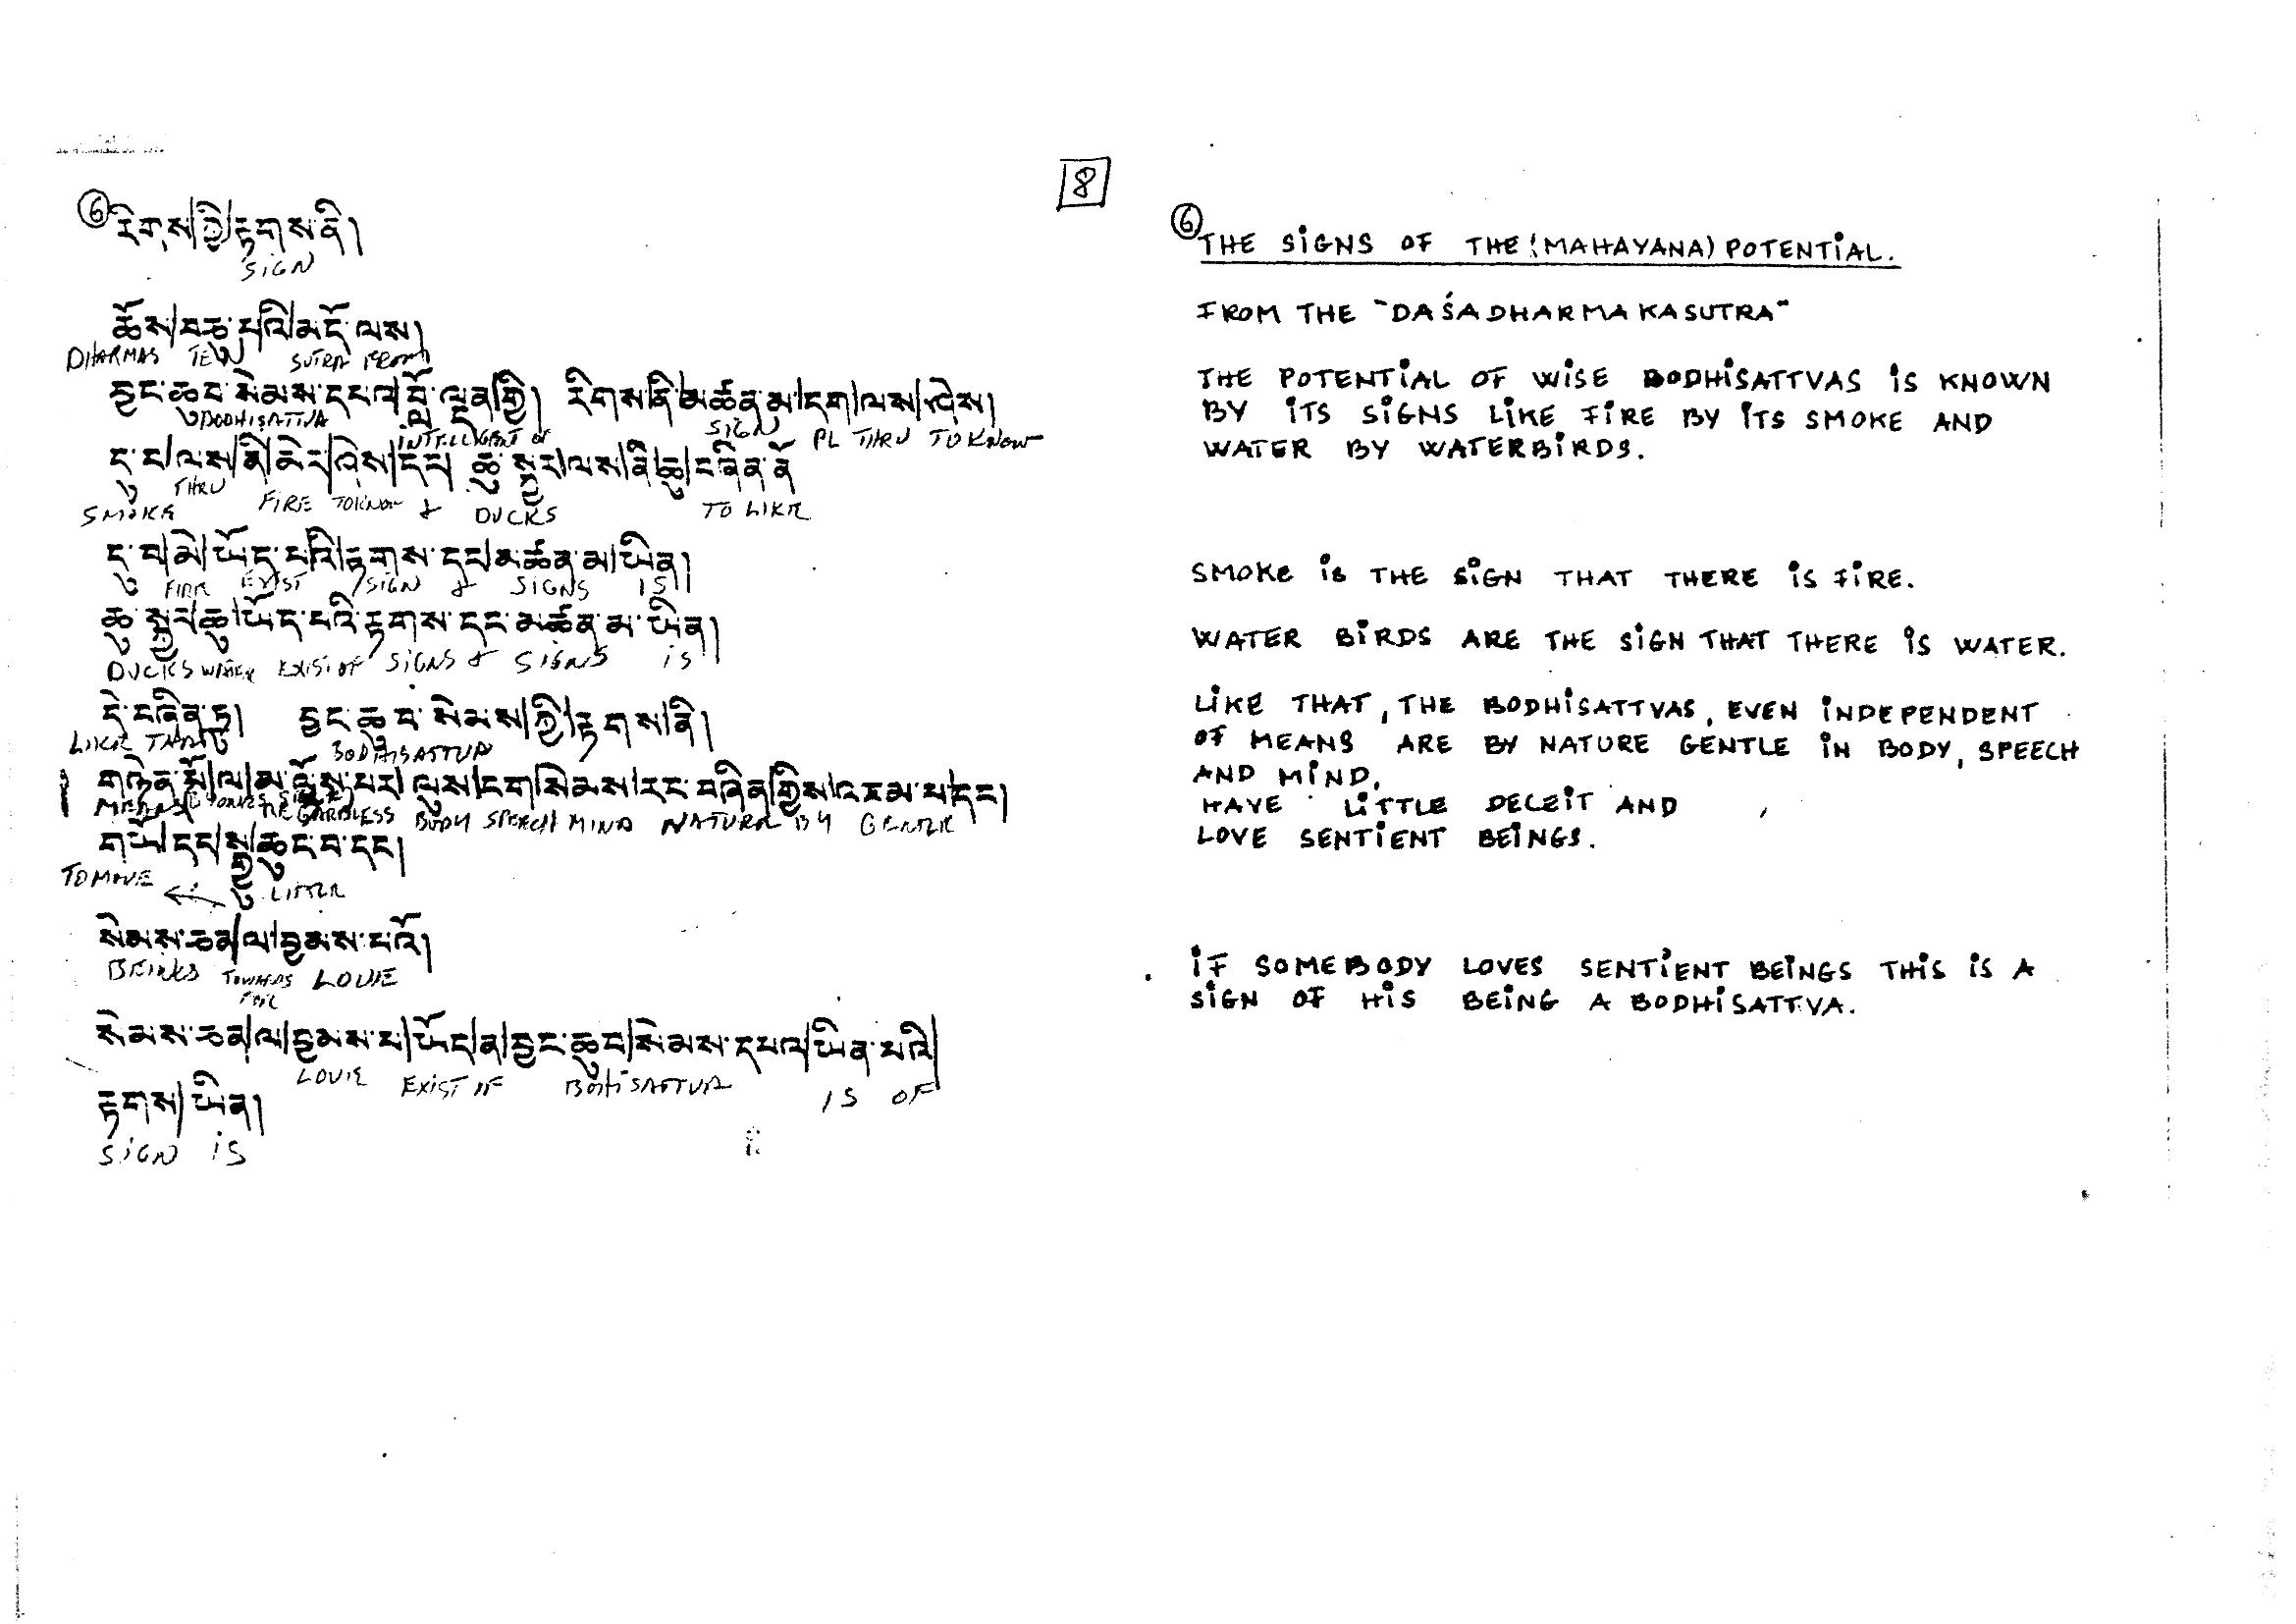 8
6
རིགས|ཀྱི|རྟགས་ནི།
SIGN
ཆོས|བཅུ་པའི|མདོ་ལས།
DHARMAS TEN SUTRA FROM
བྱང་ཆུབ་སེམས་དཔའ|བློ་ལྡན|གྱི། རིགས་ནི|མཚན་མ|དག|ལས|ཤེས།
BODHISATTVA INTELLIGENT OF SIGN PL THRU TO KNOW
དུ་བ|ལས|ནི|མེར|ཤེས|དང། ཆུ་སྐྱར|ལས|ནི|ཆུ|བཞིན་ནོ
THRU
SMOKE FIRE TO KNOW & DUCKS TO LIKE
དུ་བ|མེ|ཡོད་པའི|རྟགས་དང|མཚན་མ|ཡིན།
FIRE EXIST SIGN & SIGNS IS
ཆུ་སྐྱར|ཆུ|ཡོད་པའི་རྟགས་དང་མཚན་མ་ཡིན།
DUCKS WATER EXIST OF SIGNS & SIGNS IS
དེ་བཞིན་དུ། བྱང་ཆུབ་སེམས|ཀྱི|རྟགས|ནི།
LIKE THAT BODHISATTVA
གཉེན་པོ|ལ|མ་ལྟོས་པར|ལུས|ངག|སེམས|རང་བཞིན|གྱིས|འཇམ་པ|དང།
MEANS REGARDLESS BODY SPEECH MIND NATURE BY GENTLE
གཡོ|དང|སྒྱུ|ཆུང་བ་དང།
TO MOVE LITTLE
སེམས་ཅན|ལ|བྱམས་པའོ།
BEINGS TOWARDS LOVE
FOR
སེམས་ཅན|ལ|བྱམས་པ|ཡོད|ན|བྱང་ཆུབ|སེམས་དཔའ|ཡིན་པའི|
LOVE EXIST IF BODHISATTVA IS OF
རྟགས|ཡིན།
SIGN IS
6
THE SIGNS OF THE (MAHAYANA) POTENTIAL.
FROM THE "DAŚADHARMAKASUTRA"
THE POTENTIAL OF WISE BODHISATTVAS IS KNOWN
BY ITS SIGNS LIKE FIRE BY ITS SMOKE AND
WATER BY WATERBIRDS.
SMOKE IS THE SIGN THAT THERE IS FIRE.
WATER BIRDS ARE THE SIGN THAT THERE IS WATER.
LIKE THAT, THE BODHISATTVAS, EVEN INDEPENDENT
OF MEANS ARE BY NATURE GENTLE IN BODY, SPEECH
AND MIND,
HAVE LITTLE DECEIT AND
LOVE SENTIENT BEINGS.
IF SOMEBODY LOVES SENTIENT BEINGS THIS IS A
SIGN OF HIS BEING A BODHISATTVA.